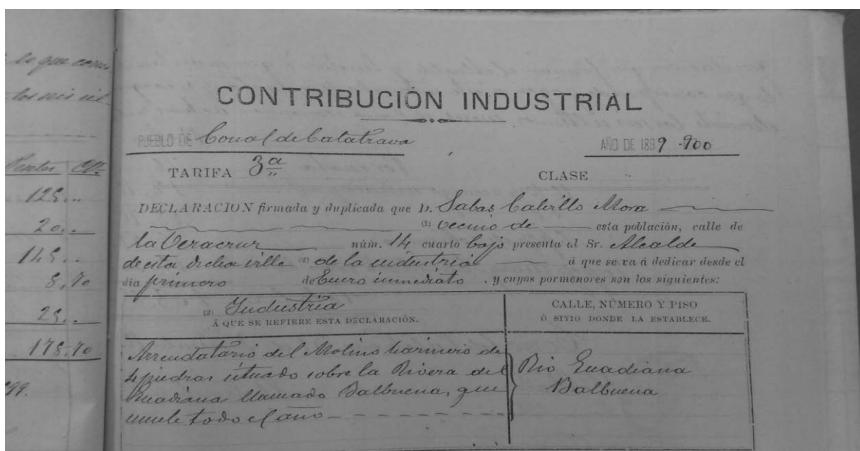 lo que corres
los seis mil
Pesetas Cts.
125..
20..
145..
8,70
25..
178.70
99.
CONTRIBUCIÓN INDUSTRIAL
PUEBLO DE Corral de Calatrava
AÑO DE 1899-900
TARIFA 3ª
CLASE
DECLARACION firmada y duplicada que D. Sabas Calvillo Mora
(1) vecino de esta población, calle de
la Veracruz núm. 14 cuarto bajo presenta al Sr. Alcalde
de esta dicha villa (2) de la industria á que se va á dedicar desde el
día primero de Enero inmediato, y cuyos pormenores son los siguientes:
(3) Industria
Á QUE SE REFIERE ESTA DECLARACIÓN.
CALLE, NÚMERO Y PISO
Ó SITIO DONDE LA ESTABLECE.
Arrendatario del Molino harinero de
4 piedras situado sobre la Rivera del
Guadiana llamado Balbuena, que
muele todo el año
Rio Guadiana
Balbuena